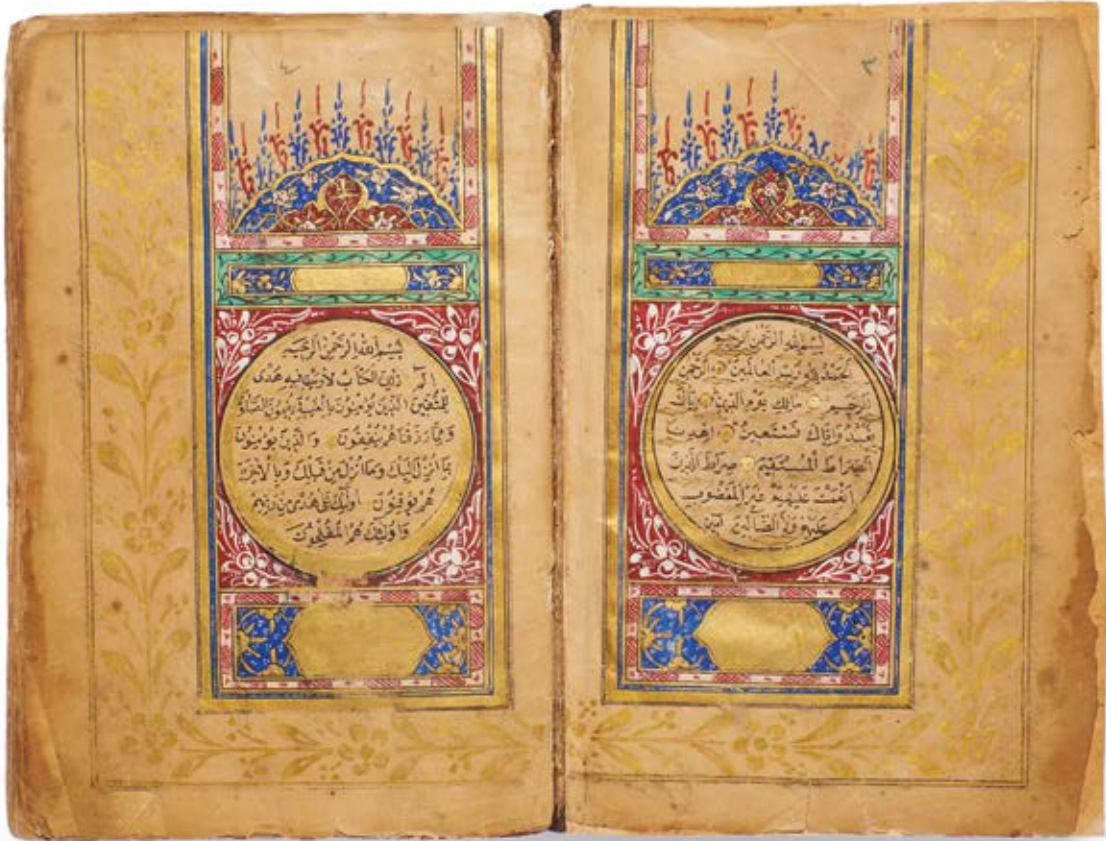 ٣
بسم الله الرحمن الرحيم
الحمد لله رب العالمين الرحمن
الرحيم مالك يوم الدين اياك
نعبد واياك نستعين اهدنا
الصراط المستقيم صراط الذين
انعمت عليهم غير المغضوب
عليهم ولا الضالين امين
٤
بسم الله الرحمن الرحيم
الم ذلك الكتاب لا ريب فيه هدى
للمتقين الذين يؤمنون بالغيب ويقيمون الصلوة
ومما رزقناهم ينفقون والذين يؤمنون
بما انزل اليك وما انزل من قبلك وبالآخرة
هم يوقنون اولئك على هدى من ربهم
واولئك هم المفلحون